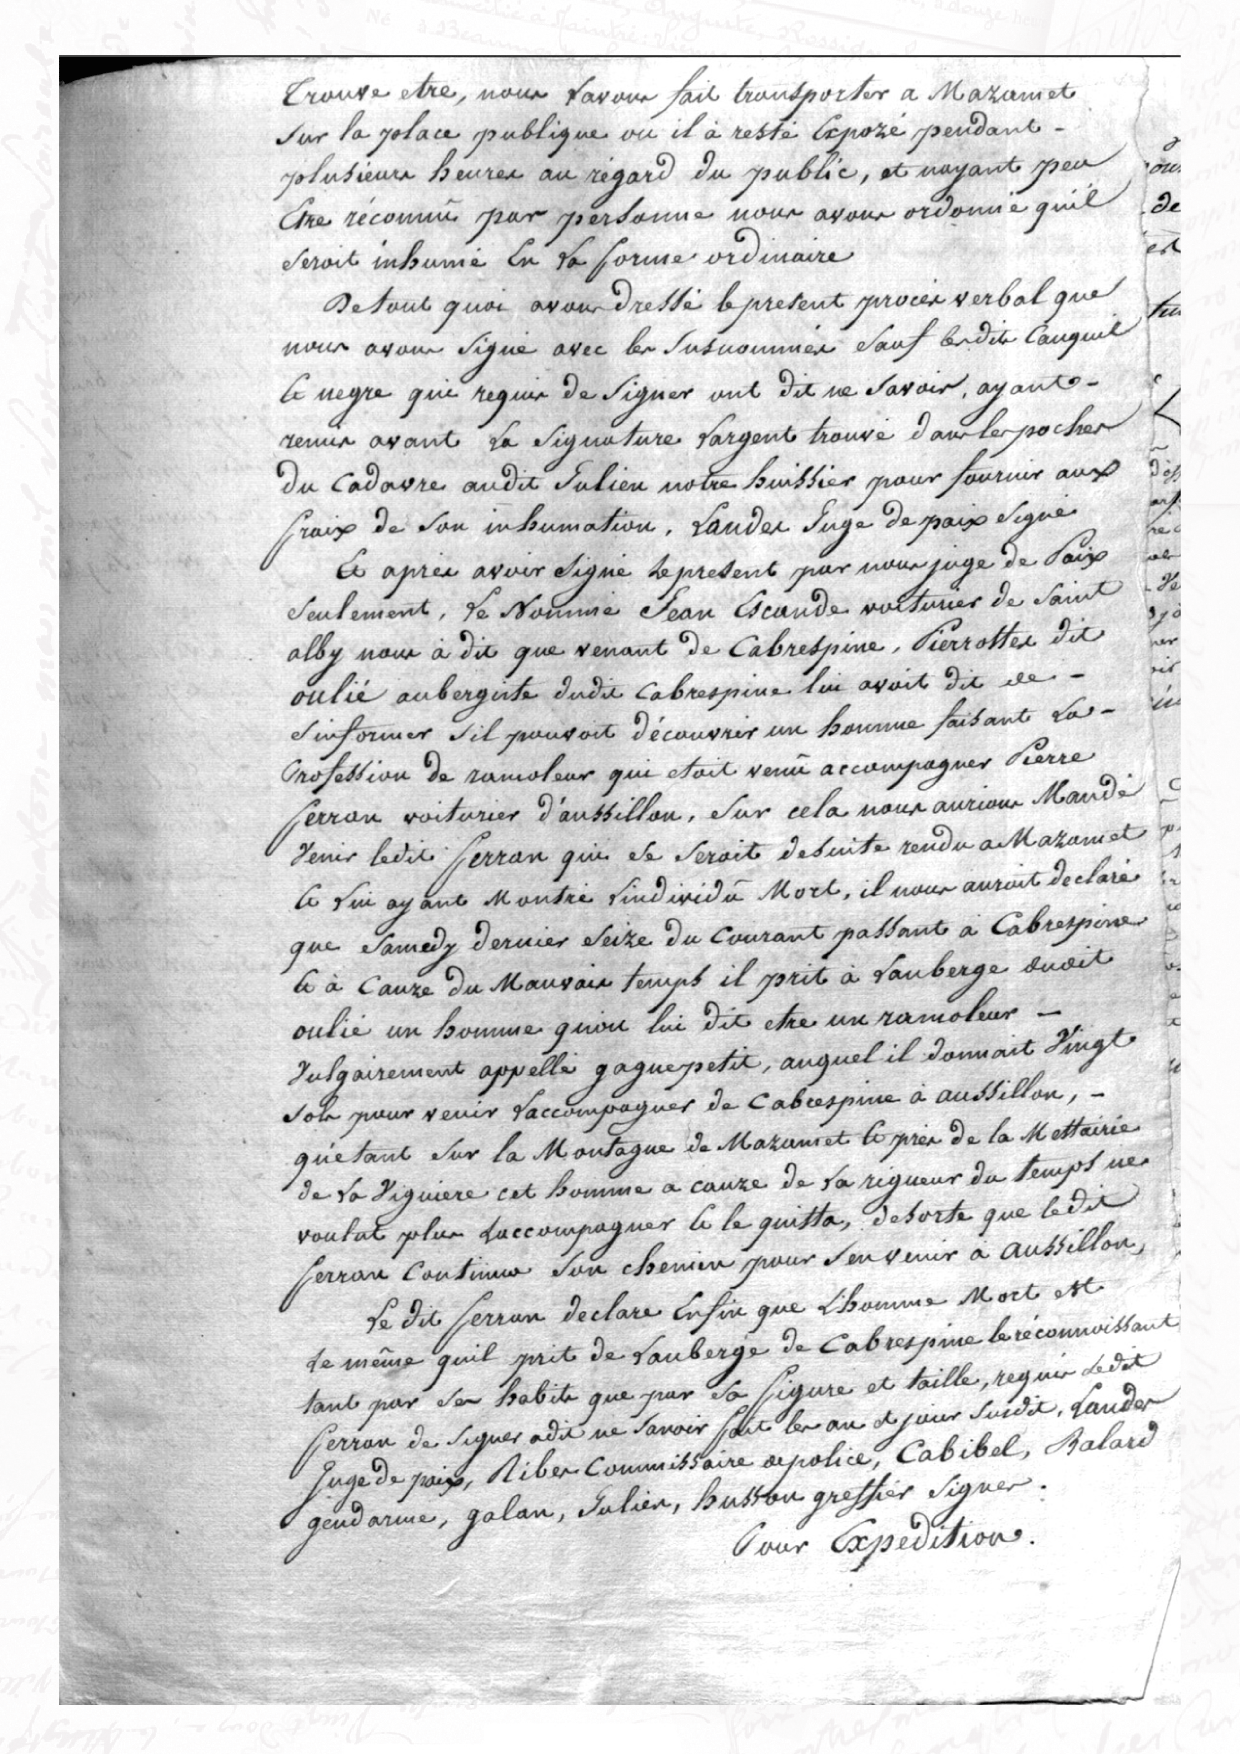 trouve etre, nous Lavons fait transporter a Mazamet
sur la place publique ou il à resté Expozé pendant -
plusieurs heures au régard du public, et nayant peu
Etre réconnû par personne nous avons ordonné qu'il
seroit inhumé En La forme ordinaire
De tout quoi avons dressé le present procès verbal que
nous avons signé avec les susnommés sauf lesdits Cauquil
le negre qui requis de signer ont dit ne savoir, ayant -
remis avant La signature Largent trouvé dans les poches
du Cadavre audit Julien notre huissier pour fournir aux
fraix de son inhumation, Landes Juge de paix signé
Et après avoir signé Le present par nous juge de Paix
seulement, Le Nommé Jean Escande voiturier de Saint
alby nous à dit que venant de Cabrespine, Pierrottes dit
oulié aubergiste dudit Cabrespine lui avoit dit de -
s'informer s'il pouvoit découvrir un homme faisant La -
Profession de ramoleur qui etoit venû accompagner Pierre
ferran voiturier d'aussillon, sur cela nous aurions Mandé
Venir ledit ferran qui se seroit desuite rendu a Mazamet
Et Lui ayant Montré Lindividû Mort, il nous auroit declaré
que samedy dernier seize du Courant passant à Cabrespine
Et à Cauze du Mauvais temps il prit à Lauberge dudit
oulié un homme qu'on lui dit etre un ramoleur -
Vulgairement appellé gagnepetit, auquel il donnait Vingt
sols pour venir Laccompagner de Cabrespine à aussillon, -
qu'étant sur la Montagne de Mazamet Et près de la Mettairie
de La Viguiere cet homme a cauze de La rigueur du temps ne
voulut plus Laccompagner Et le quitta, desorte que ledit
ferran Continua son chemin pour s'en venir à aussillon,
Le dit ferran declare Enfin que L'homme Mort est
Le même quil prit de Lauberge de Cabrespine le réconnoissant
tant par ses habits que par sa figure et taille, requis Ledit
ferran de signer adit ne savoir fait les an et jour susdit, Landes
Juge de paix, Ribes Commissaire de police, Cabibel, Balard
gendarme, galan, Julien, husson greffier signés.
Pour Expedition.